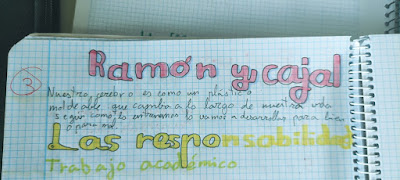 3
Ramón y cajal
Nuestro cerebro es como un plástico
moldeable que cambia a lo largo de nuestra vida
segun como lo entrenemos lo vamos a desarrollar para bien
o para mal.
Las responsabilidad
Trabajo académico